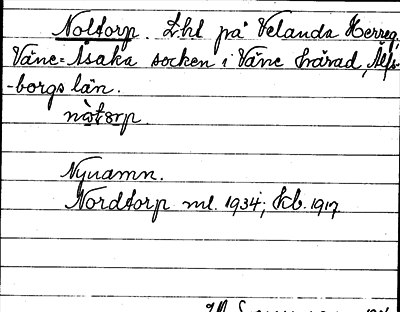 Noltorp. Lhl på Velanda Herreg.
Väne-Åsaka socken i Väne härad, Älfs-
-borgs län.
Nynamn.
Nordtorp ml. 1934; Kb. 1917.